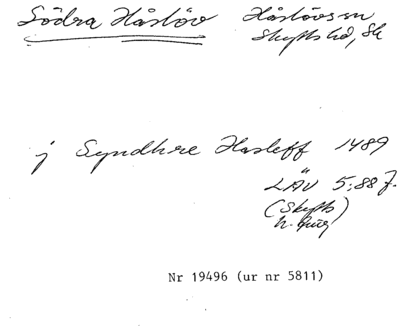 Södra Håslöv Håslövs sn
Skytts hd, Sk
j Syndhre Hasleff 1489
LÄU 5:88 f.
(Skytts)
Nr 19496 (ur nr 5811)